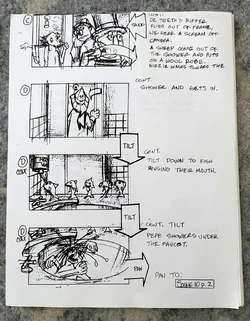 C
CONT.
DE TERTO'S PUFFER
RUSH OUT OF FRAME,
WE HEAR A SCREAM OFF
CAMERA.
A SHEEP COME OUT OF
THE SHOWER AND PUTS
ON A WOOL ROBE.
WALKS TOWARD THE
D
CONT.
SHOWER AND GETS IN.
TILT
D
CONT.
CONT.
TILT DOWN TO FISH
RINSING THEIR MOUTH.
TILT
D
CONT.
CONT. TILT
PEPE SHOWERS UNDER
THE FAUCET.
PAN
PAN TO:
SCENE 10 P. 2